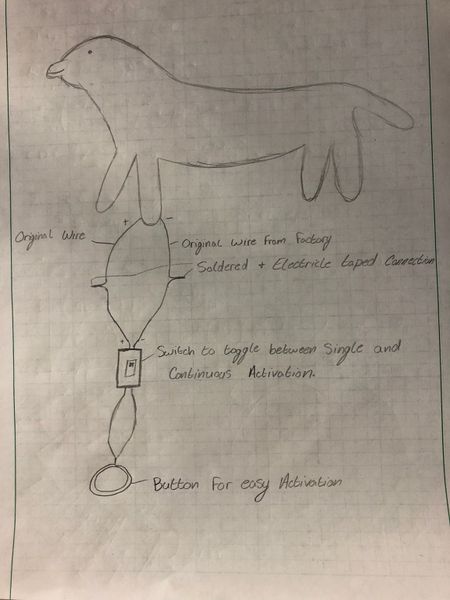 + -
Original Wire
Original Wire from Factory
Soldered + Electricle taped Connection
+ -
Switch to toggle between Single and
Continuous Activation.
Button For easy Activation